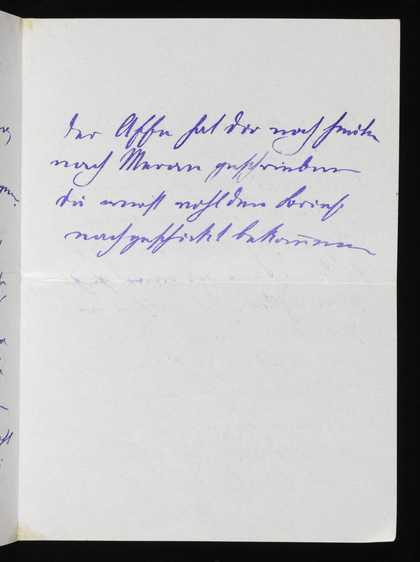 der Affe hat dir noch heute
nach Meran geschrieben
du wirst wohl den Brief
nachgeschickt bekommen